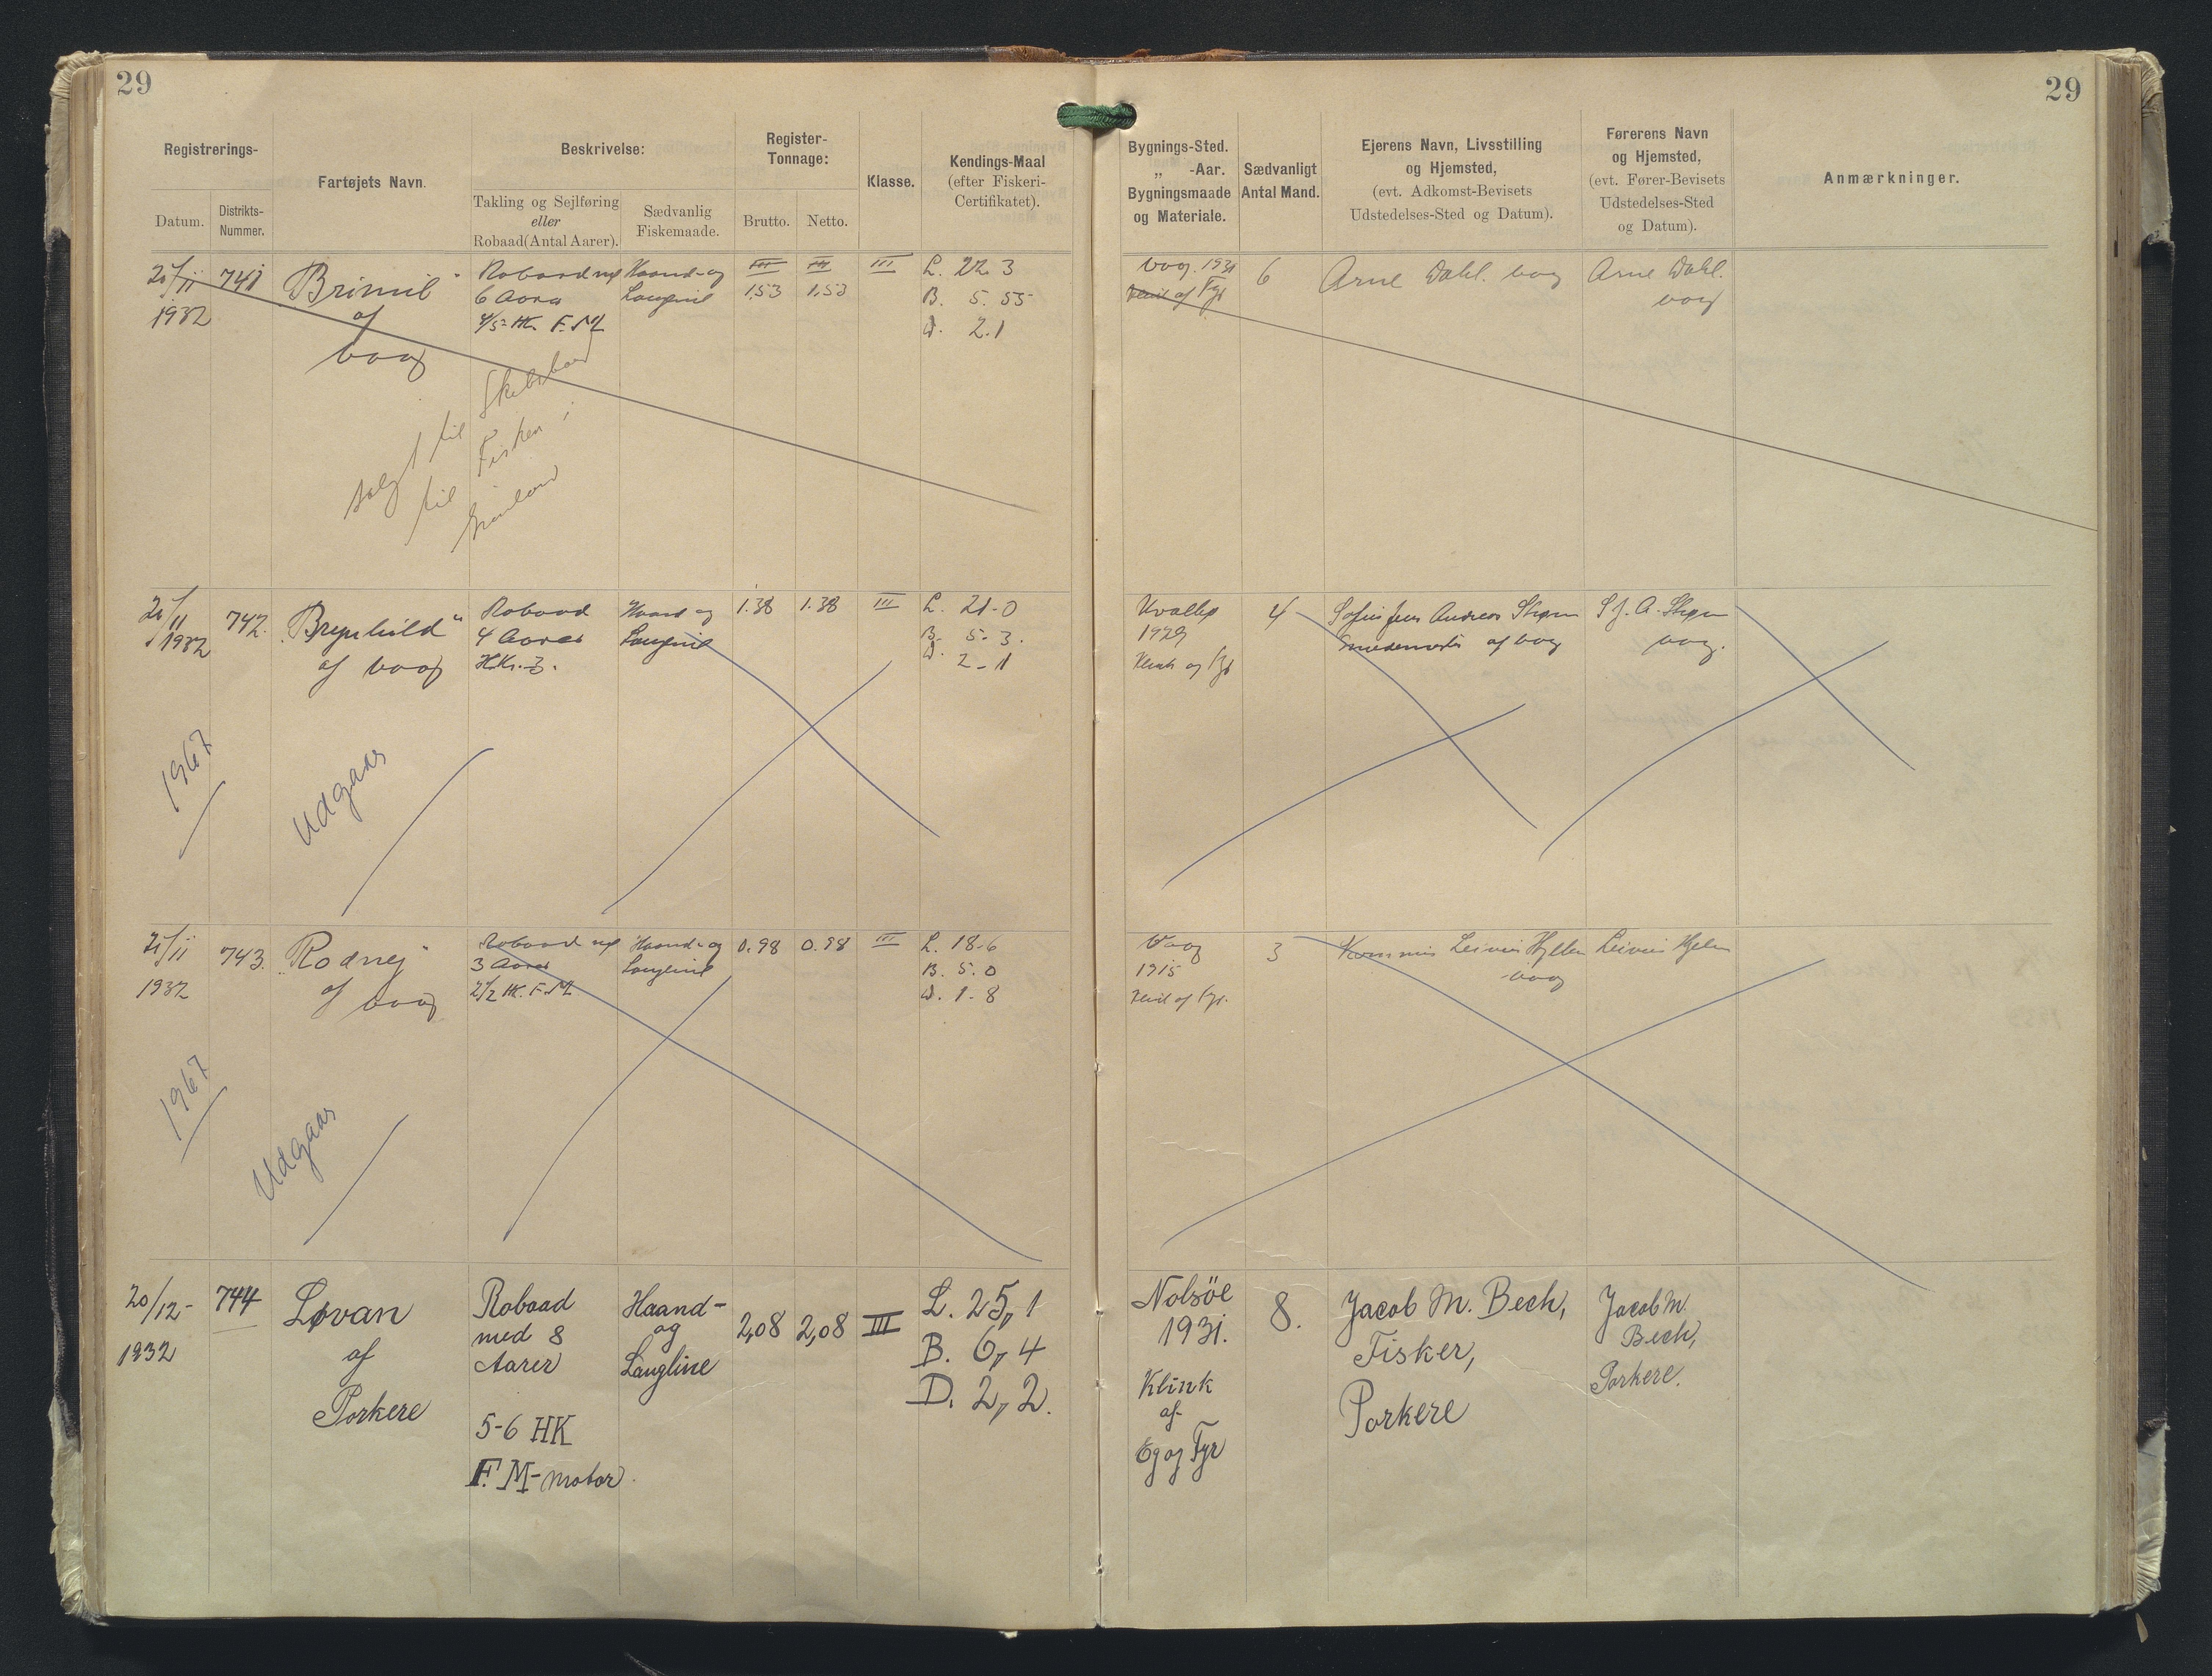 29
29
Registrerings-
Datum.
Distrikts-
Nummer.
Fartøjets Navn.
Beskrivelse:
Takling og Sejlføring
eller
Robaad (Antal Aarer).
Sædvanlig
Fiskemaade.
Register-
Tonnage:
Brutto.
Netto.
Klasse.
Kendings-Maal
(efter Fiskeri-
Certifikatet).
Bygnings-Sted.
„ -Aar.
Bygningsmaade
og Materiale.
Sædvanligt
Antal Mand.
Ejerens Navn, Livsstilling
og Hjemsted,
(evt. Adkomst-Bevisets
Udstedelses-Sted og Datum).
Førerens Navn
og Hjemsted,
(evt. Fører-Bevisets
Udstedelses-Sted
og Datum).
Anmærkninger.
1932
741
Brimil
af
Vaag
Robaad
6 Aarer
4/5 HK. F.M
Haand- og
Langline
III
1.53
1.53
III
L. 22 3
B. 5. 55
D. 2.1
Vaag. 1931
af Fyr
6
Arne Dahl. Vaag
Arne Dahl.
Vaag
solgt til Skibsbaad
til Fiskeri i
Grønland
1932
742.
Brynhild"
af Vaag
Robaad
4 Aarer
HK. 3.
Haand og
Langline
1.38
1.38
III
L. 21-0
B. 5. 3.
D. 2-1
Hvalbø
1929
Klink og Fyr
4
Andreas
af Vaag
A.
Vaag.
1967
Udgaar
1932
743.
"Rodnej"
af Vaag
Robaad
3 Aarer
2 1/2 HK. F.M.
Haand- og
Langline
0.98
0.98
III
L. 18-6
B. 5.0
D. 1-8
Vaag
1915
af Fyr.
3
Vaag
1967
Udgaar
20/12-
1932
744
Løvan
af
Porkere
Robaad
med 8
Aarer
5-6 HK
F.M-motor.
Haand-
og
Langline
2,08
2,08
III
L. 25,1
B. 6,4
D. 2,2.
Nolsöe
1931.
Klink
af
Eg og Fyr
8.
Jacob M. Bech,
Fisker,
Porkere
Jacob M.
Bech,
Porkere.